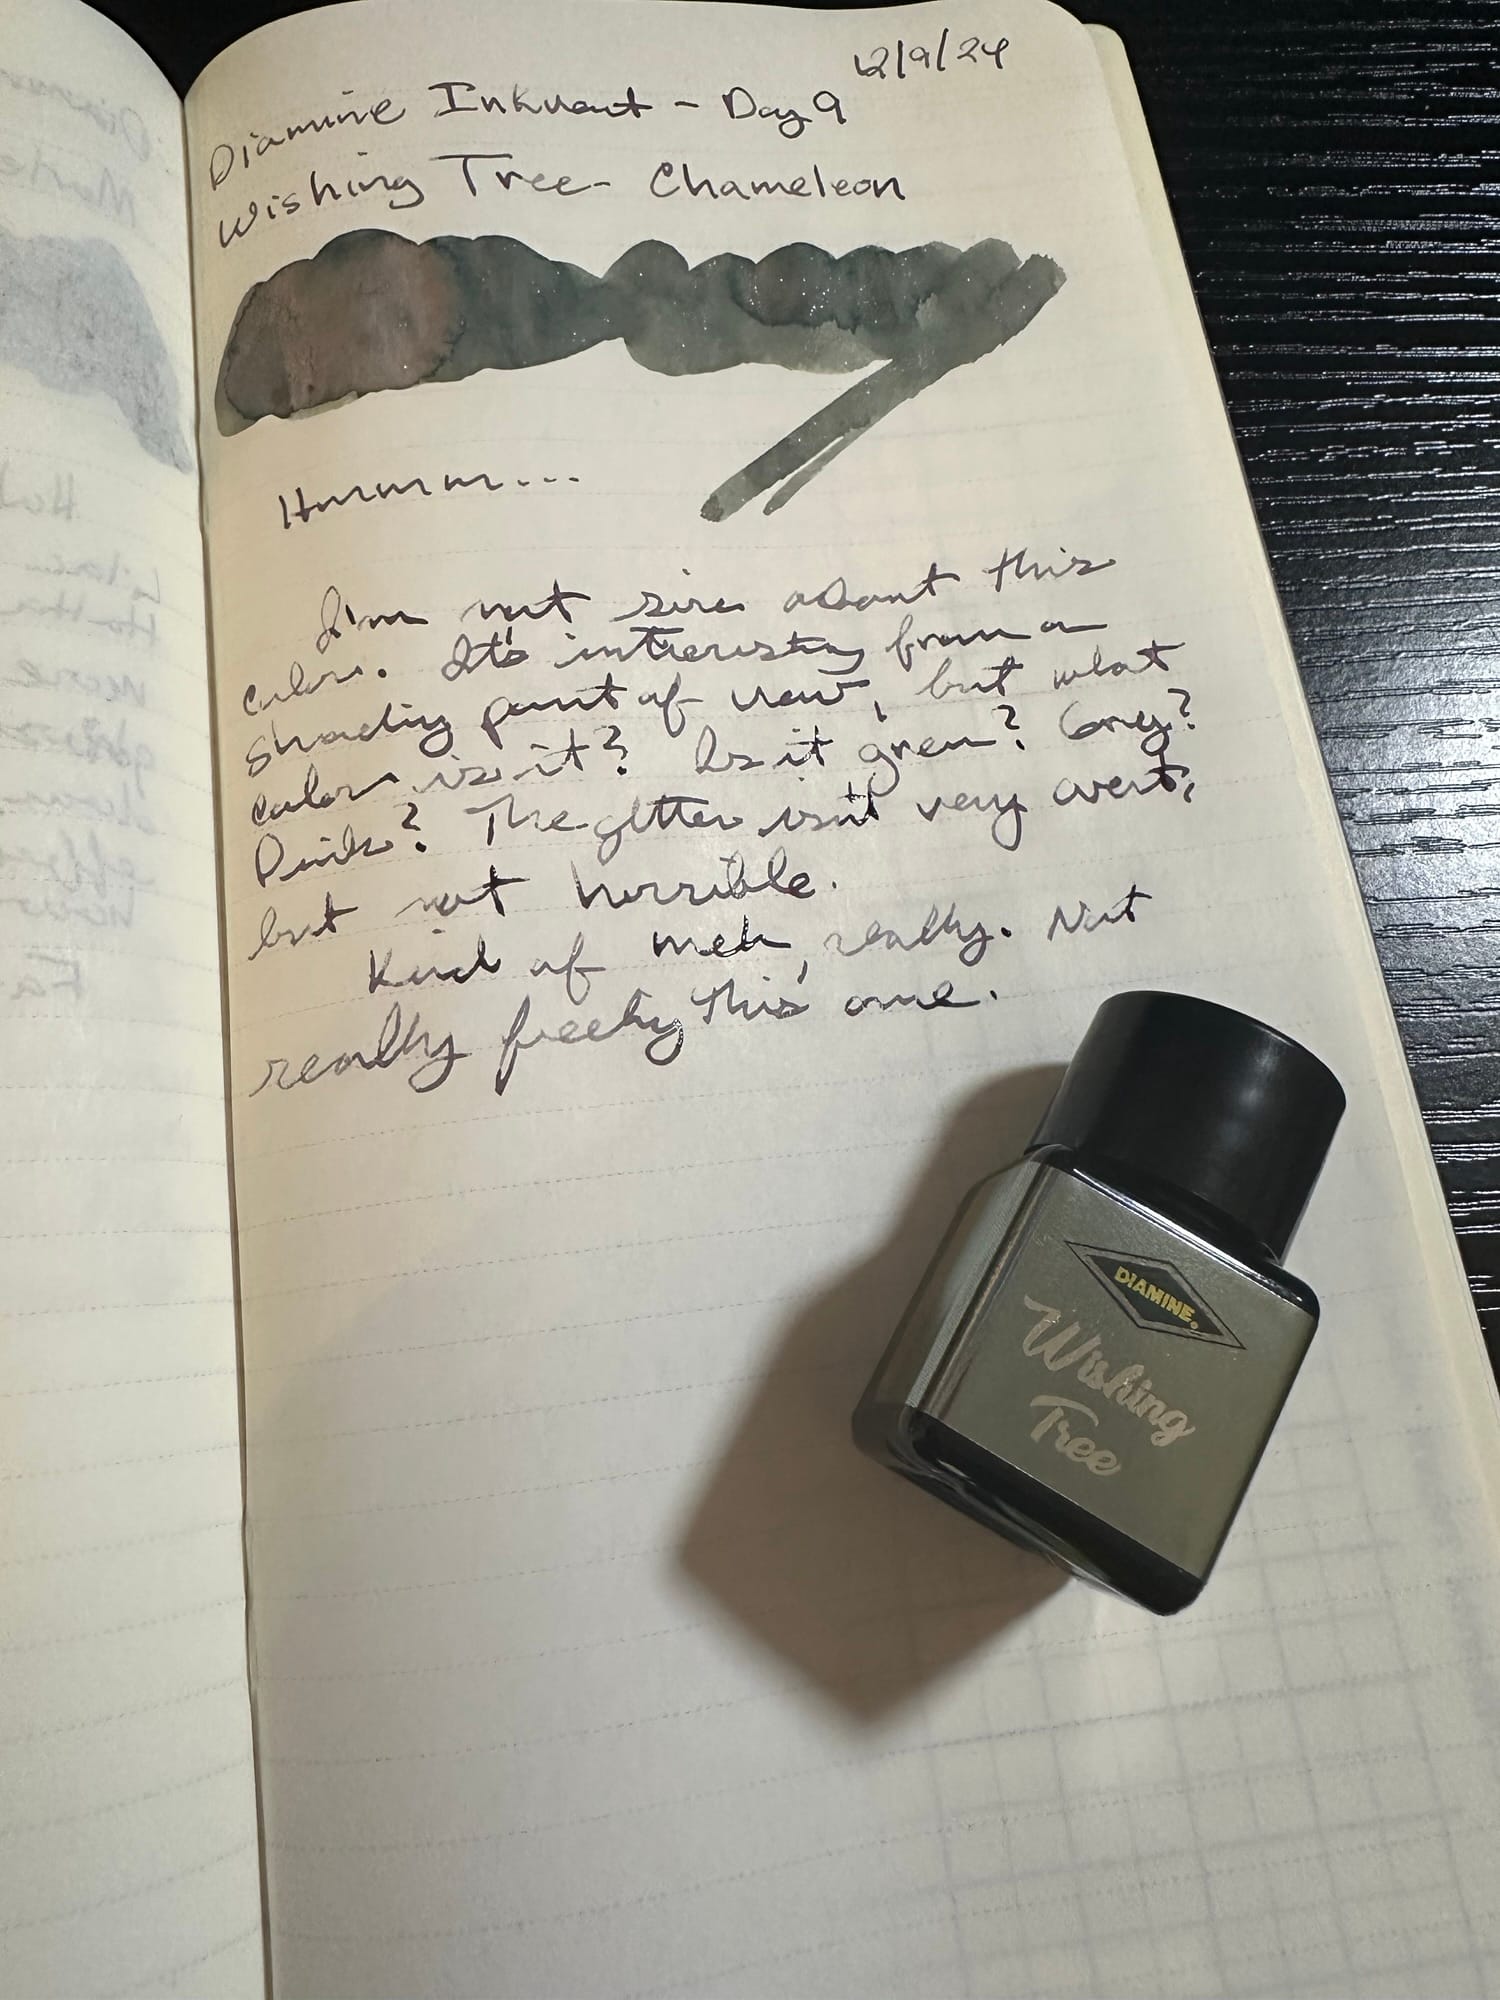 12/9/24
Diamine Inkvent - Day 9
Wishing Tree - Chameleon
Hmmmm...
I'm not sure about this
color. It's interesting from a
shading point of view, but what
color is it? Is it green? Grey?
Pink? The glitter isn't very overt,
but not horrible.
Kind of meh, really. Not
really feeling this one.
DIAMINE.
Wishing
Tree